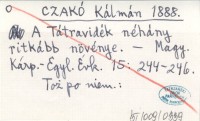 CZAKÓ Kálmán 1888.
A Tátravidék néhány
ritkább növénye. — Magy.
Kárp.-Egyl. Évk. 15: 244-246.
Toż po niem.: